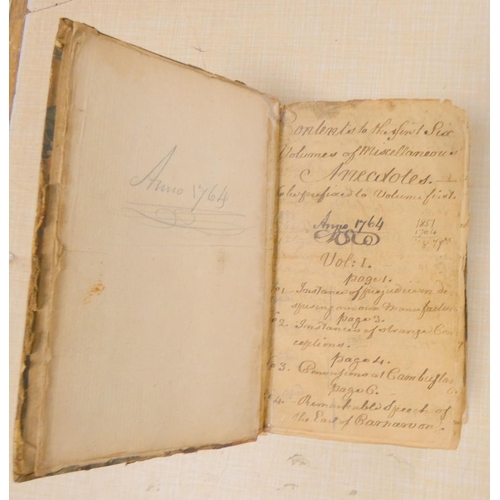 Anno 1764
Contents to the first Six
Volumes of Miscellaneous
Anecdotes.
to be prefixed to Volume first.
Anno 1764
1857
1764
Vol: I.
page 1.
No 1. Instance of prejudice in de-
spising our own Manufactur
page 3.
No 2. Instances of strange Con
ceptions.
page 4.
No 3. at Cambuslan
page 6.
No 4. Remarkable Speech of
the Earl of Carnarvon.